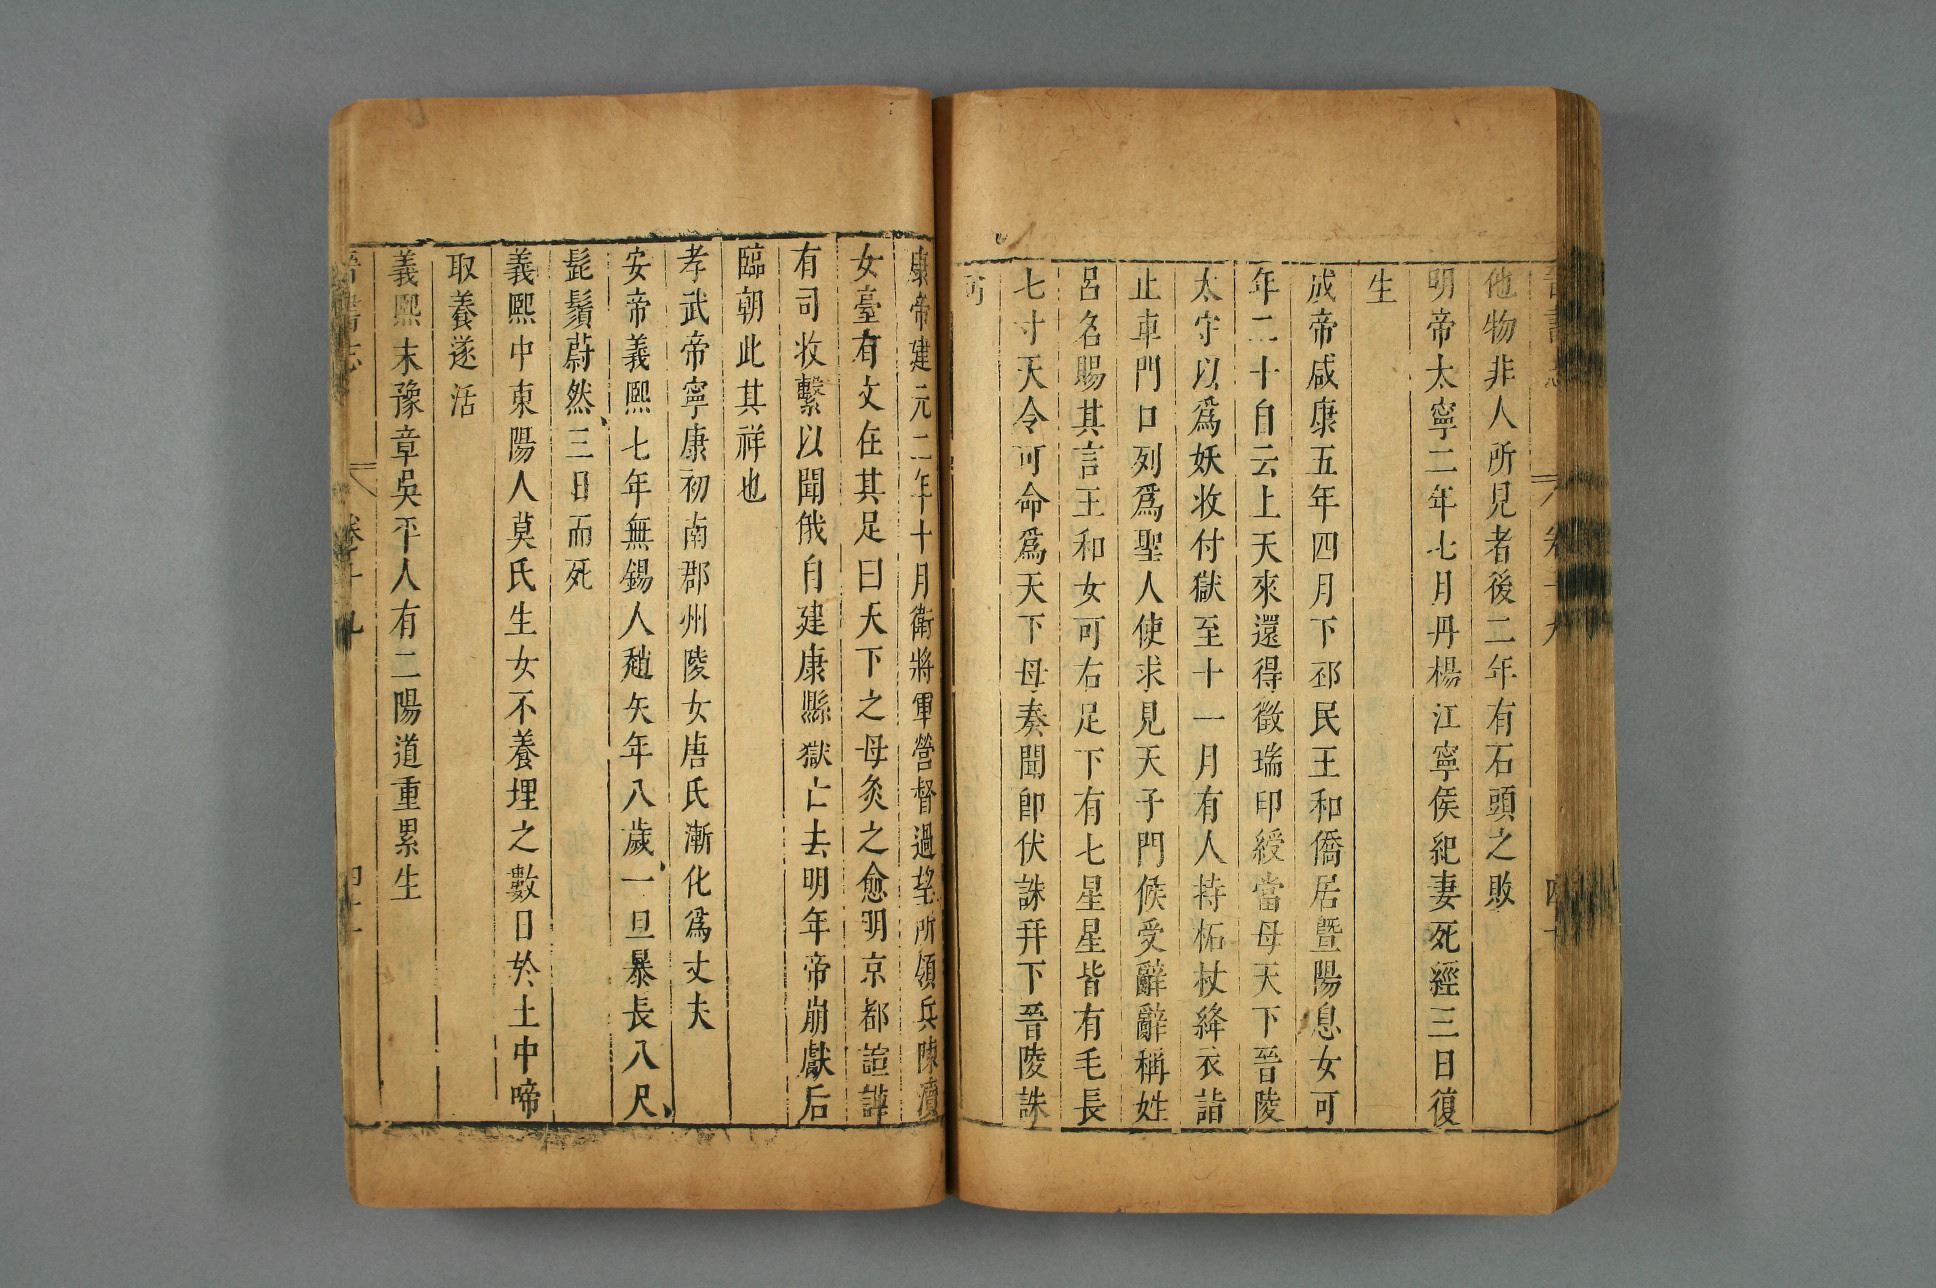 晉書志 卷十九
他物非人所見者後二年有石頭之敗
明帝太寧二年七月丹楊江寧侯紀妻死經三日復
生
成帝咸康五年四月下邳民王和僑居暨陽息女可
年二十自云上天來還得徵瑞印綬當母天下晉陵
太守以爲妖收付獄至十一月有人持柘杖絳衣詣
止車門口列爲聖人使求見天子門候受辭辭稱姓
呂名賜其言王和女可右足下有七星星皆有毛長
七寸天令可命爲天下母奏聞卽伏誅幷下晉陵誅
可
康帝建元二年十月衛將軍營督過望所領兵陳瀆
女臺有文在其足曰天下之母灸之愈明京都諠譁
有司收繫以聞俄自建康縣獄亡去明年帝崩獻后
臨朝此其祥也
孝武帝寧康初南郡州陵女唐氏漸化爲丈夫
安帝義熙七年無錫人趙矢年八歲一旦暴長八尺
髭鬚蔚然三日而死
義熙中東陽人莫氏生女不養埋之數日於土中啼
取養遂活
義熙末豫章吳平人有二陽道重累生
晉書志 卷十九